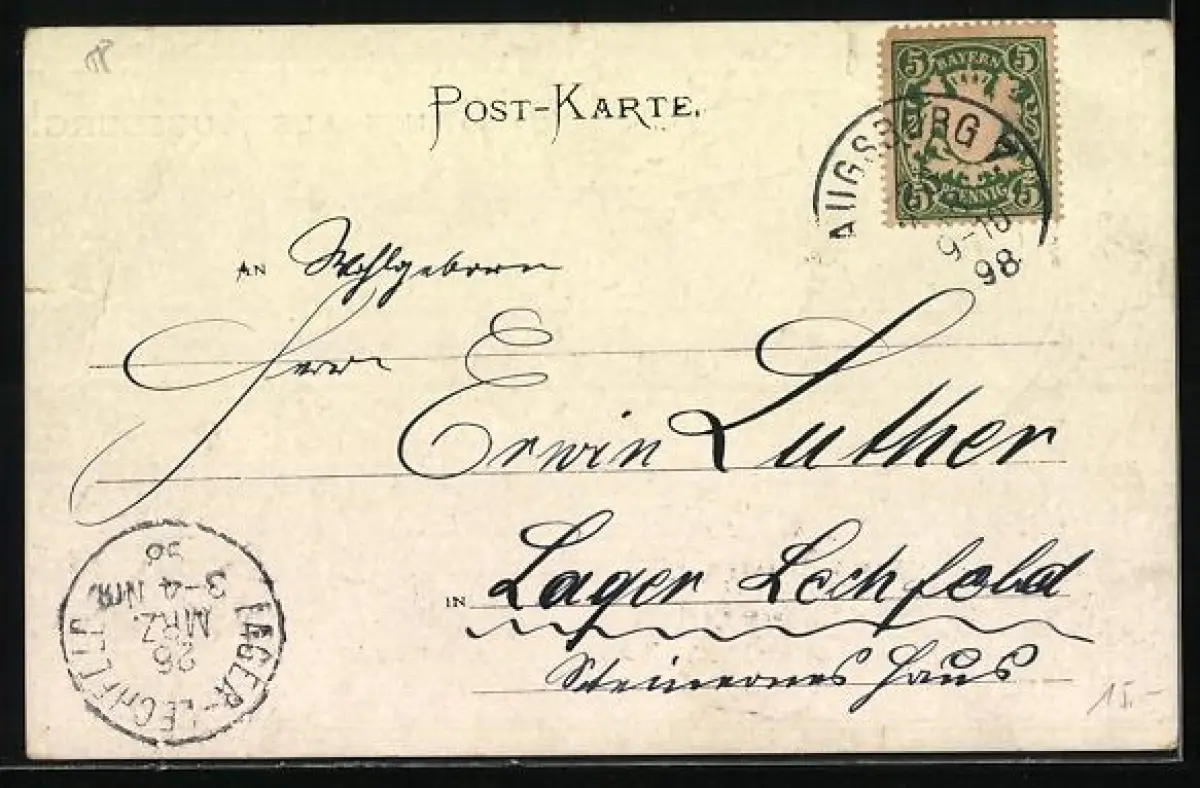 POST-KARTE.
5 BAYERN 5
5 PFENNIG 5
AUGSBURG
9-10
98
AN Wohlgeboren
Herrn
Erwin Luther
IN Lager Lechfeld
Steinernes Haus
LAGER-LECHFELD
26
MRZ.
3-4 Nm.
15.-